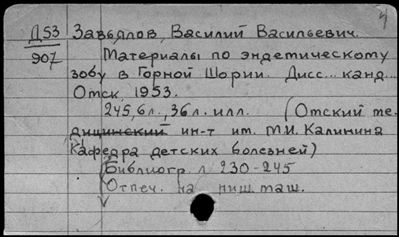 4
Д53 Завьялов, Василий Васильевич.
907 Материалы по эндетическому
зобу в Горной Шории. Дисс... канд...
Омск, 1953.
245,6л., 36л. илл. (Омский ме-
дицинский ин-т им. М.И. Калинина
Кафедра детских болезней)
Библиогр. л. 230-245
Отпеч. на пиш. маш.